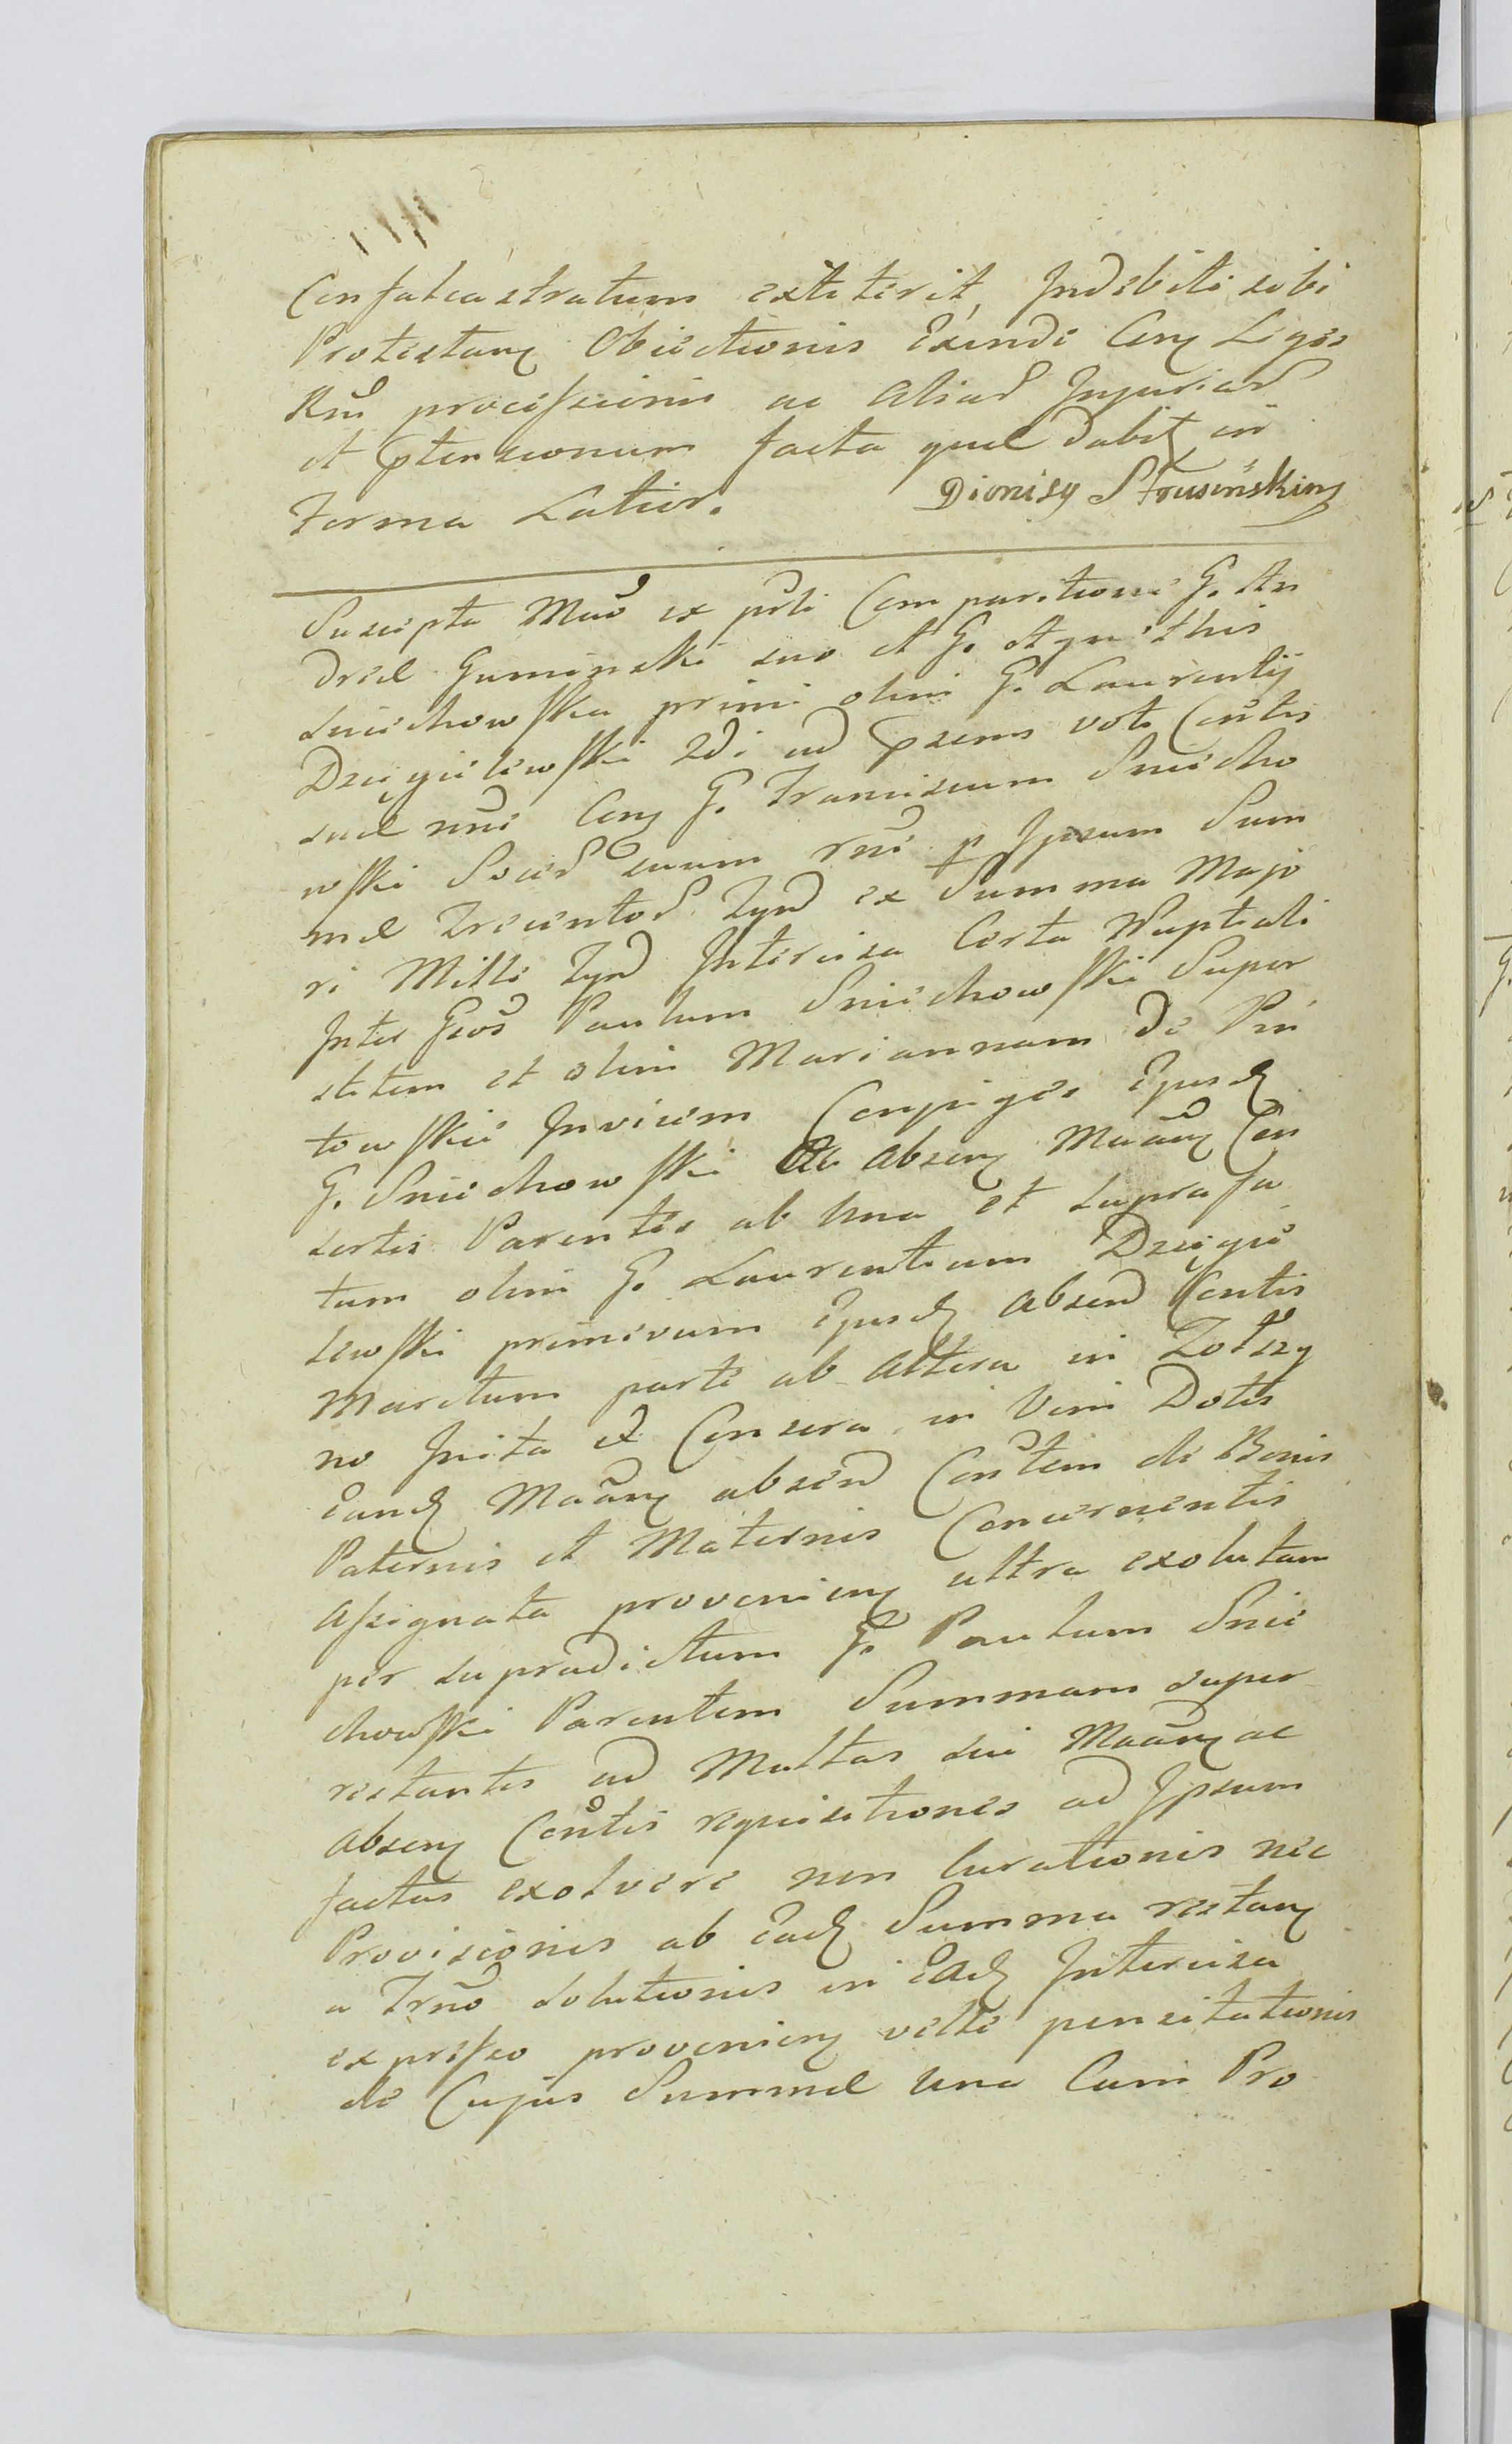 Confalcastratum extiterit, Indebiti sibi
Protestanȝ Obiectionis Exindi Conȝ Leges
Rni processionis ac Aliar Injuriar
et ptensionum facta quae dabit in
Forma Latior.
Dionisy Strusinski mȝ
Suscepta Mãõ ex pñti Comparitione G. An
dreae Guminski suo et G. Agnethis
Sniechowska primi olim G. Laurentij
Dzięgielewski 2di ad psens voti Conthis
suae nnõ Conȝ G. Franciscum Sniecho
wski Socer suum rnõ p Ipsum Sum
mae Trecentor Tynf ex Summa Majo
ri Mille Tynf Intercisa Certa Nuptiali
Inter Gsos Paulum Sniechowski Super
stitem et olim Mariannam de Pin
towskie Invicem Conjuges Ejusdȝ
G. Sniechowski Absenȝ Mãanȝ Con
sortis Parentes ab una et suprafa
tum olim G. Laurentium Dzięgie
lewski primivum Ejusdȝ Absend Contis
Maritum parte ab Altera in Zołtzy
no Inita et Consera in Vim Dotis
Eandȝ Mãanȝ absend Conthem de Bonis
Paternis et Maternis Concernentis
Assignata provenienȝ ultra exolutam
per supradictum G. Paulum Snie
chowski Parentem Summam super
restantis ad Multas sui Mãanȝ ac
Absenȝ Conthis requisitiones ad Ipsum
factas exolvere non Curationis nec
Provisionis ab Eadȝ Summa restanȝ
a Trnõ Solutionis in Eadȝ Intercisa
expresso provenienȝ velle pensitationis
de Cujus Summae una Cum Pro